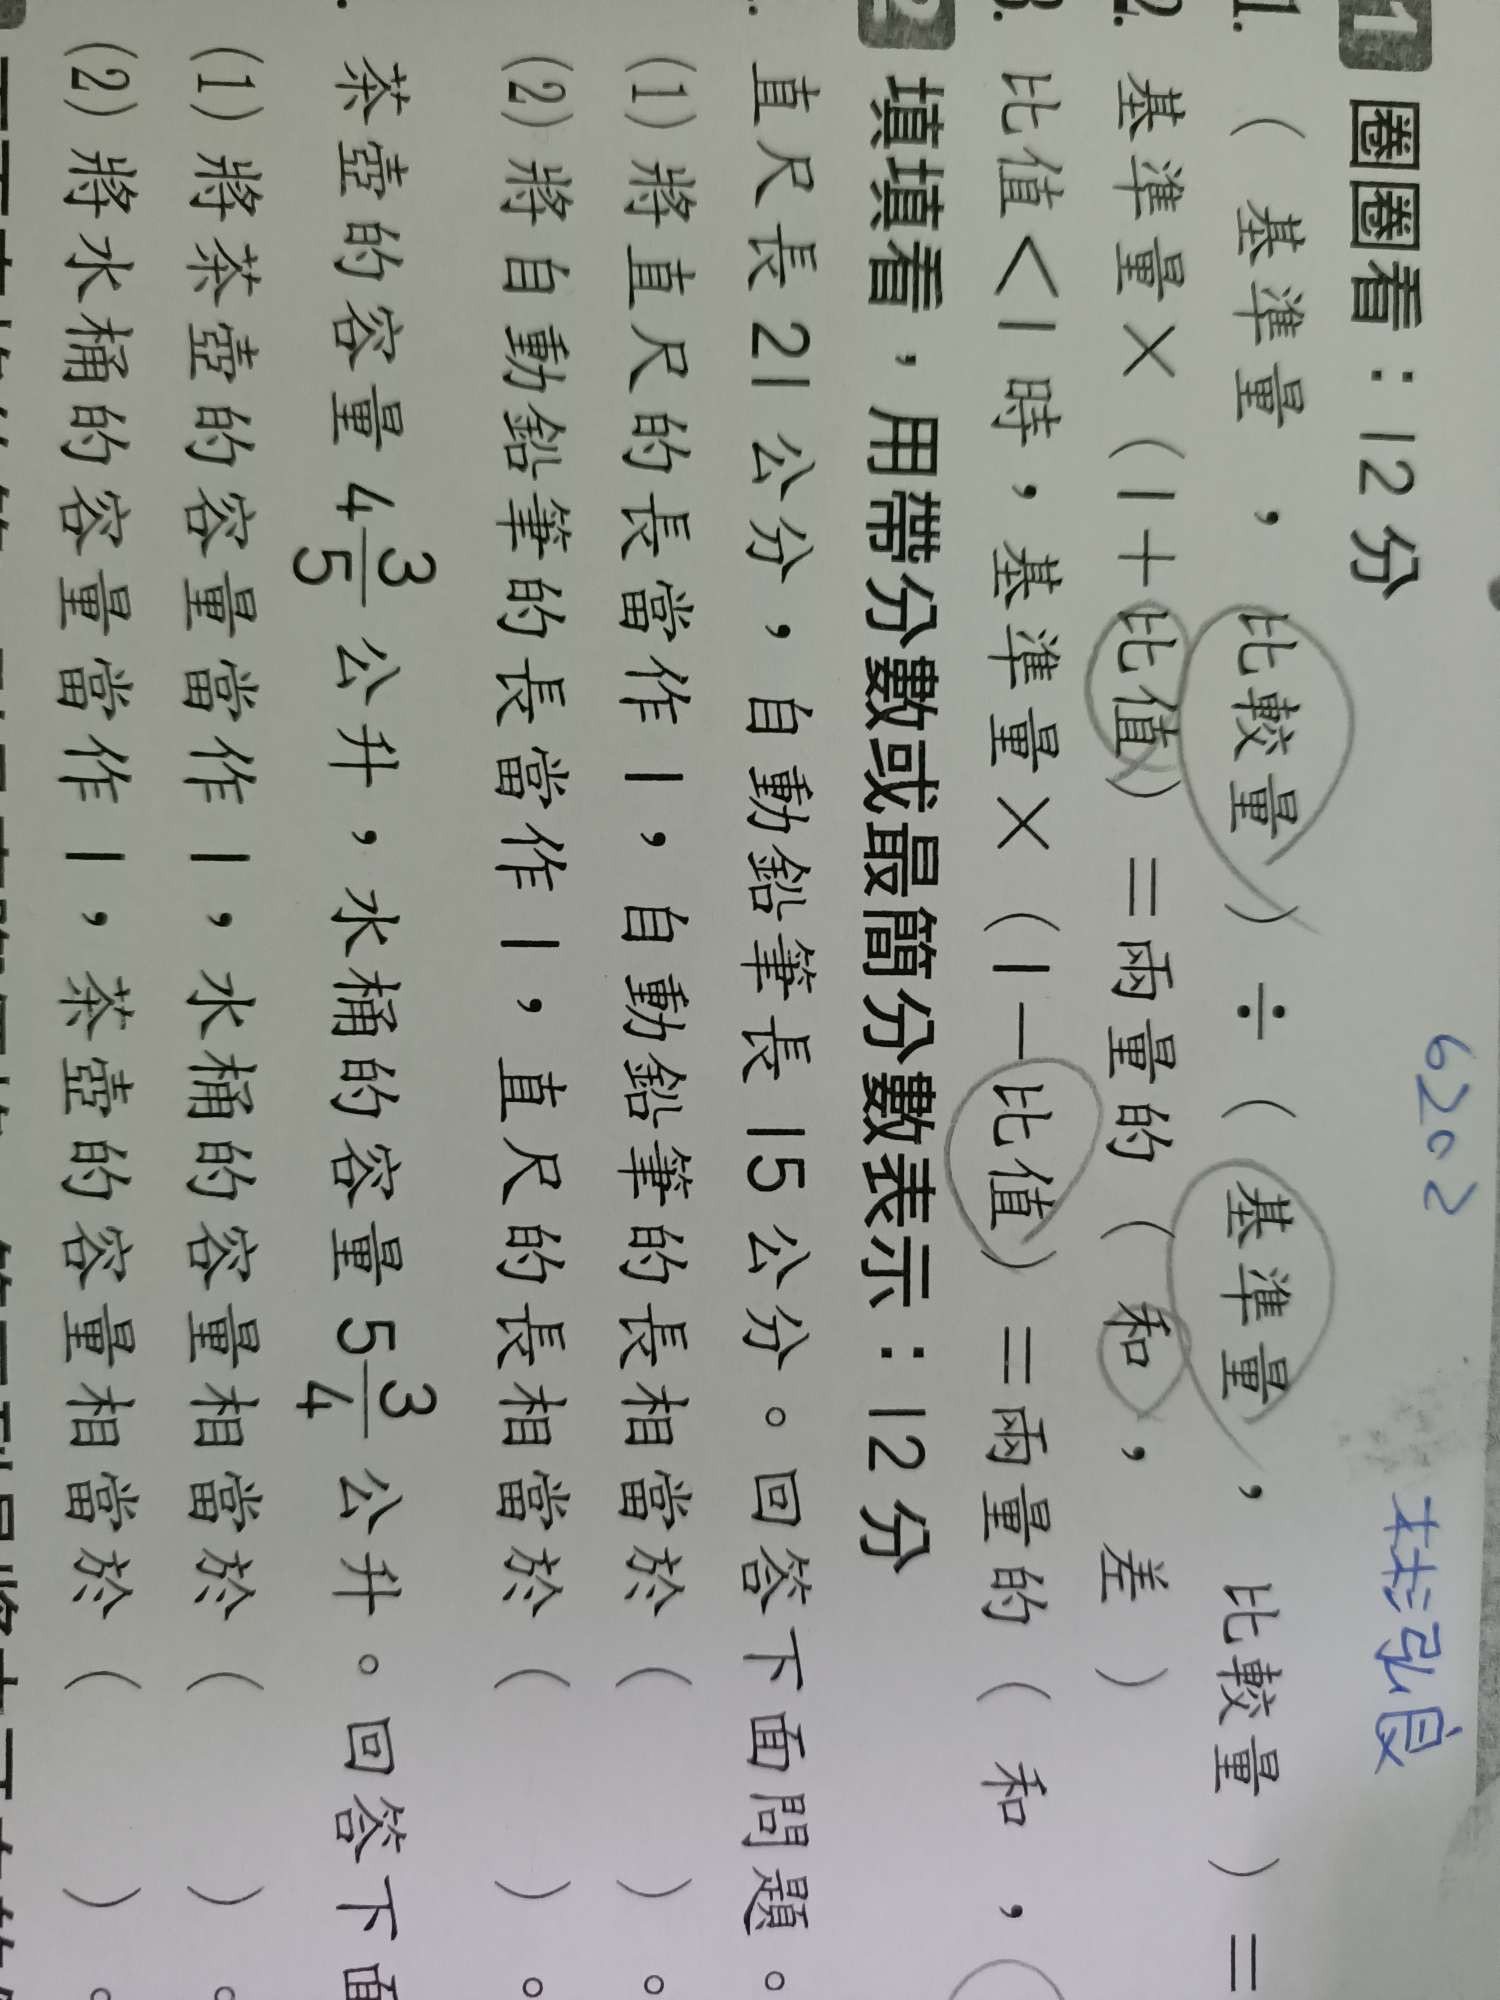 6202 林弘良
1 圈圈看：12分
1. （基準量，比較量）÷（基準量，比較量）＝
2. 基準量×（1＋比值）＝兩量的（和，差）
3. 比值＜1時，基準量×（1－比值）＝兩量的（和，
2 填填看，用帶分數或最簡分數表示：12分
直尺長21公分，自動鉛筆長15公分。回答下面問題。
(1) 將直尺的長當作1，自動鉛筆的長相當於（　）。
(2) 將自動鉛筆的長當作1，直尺的長相當於（　）。
茶壺的容量4 3/5 公升，水桶的容量5 3/4 公升。回答下面
(1) 將茶壺的容量當作1，水桶的容量相當於（　）。
(2) 將水桶的容量當作1，茶壺的容量相當於（　）。